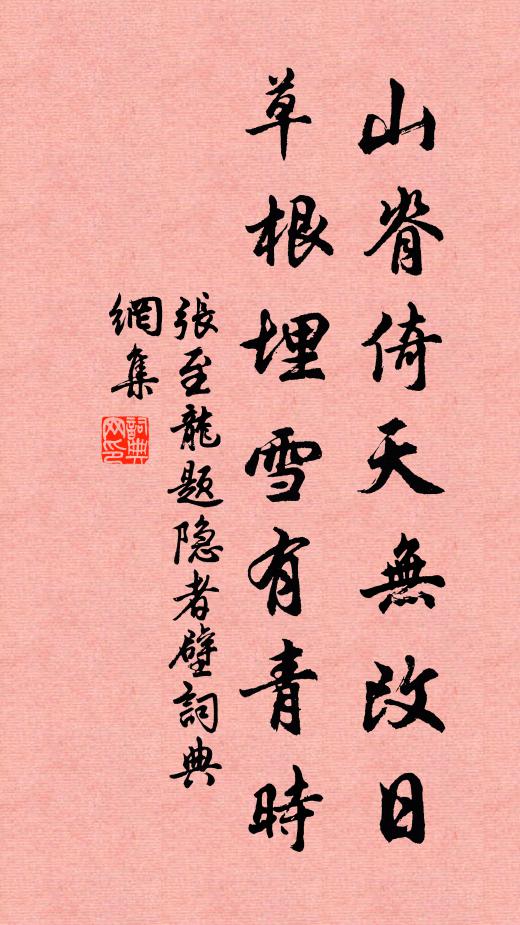 山脊倚天無改日
草根埋雪有青時
張至龍题隐者壁詞典
網集
詞典
网印